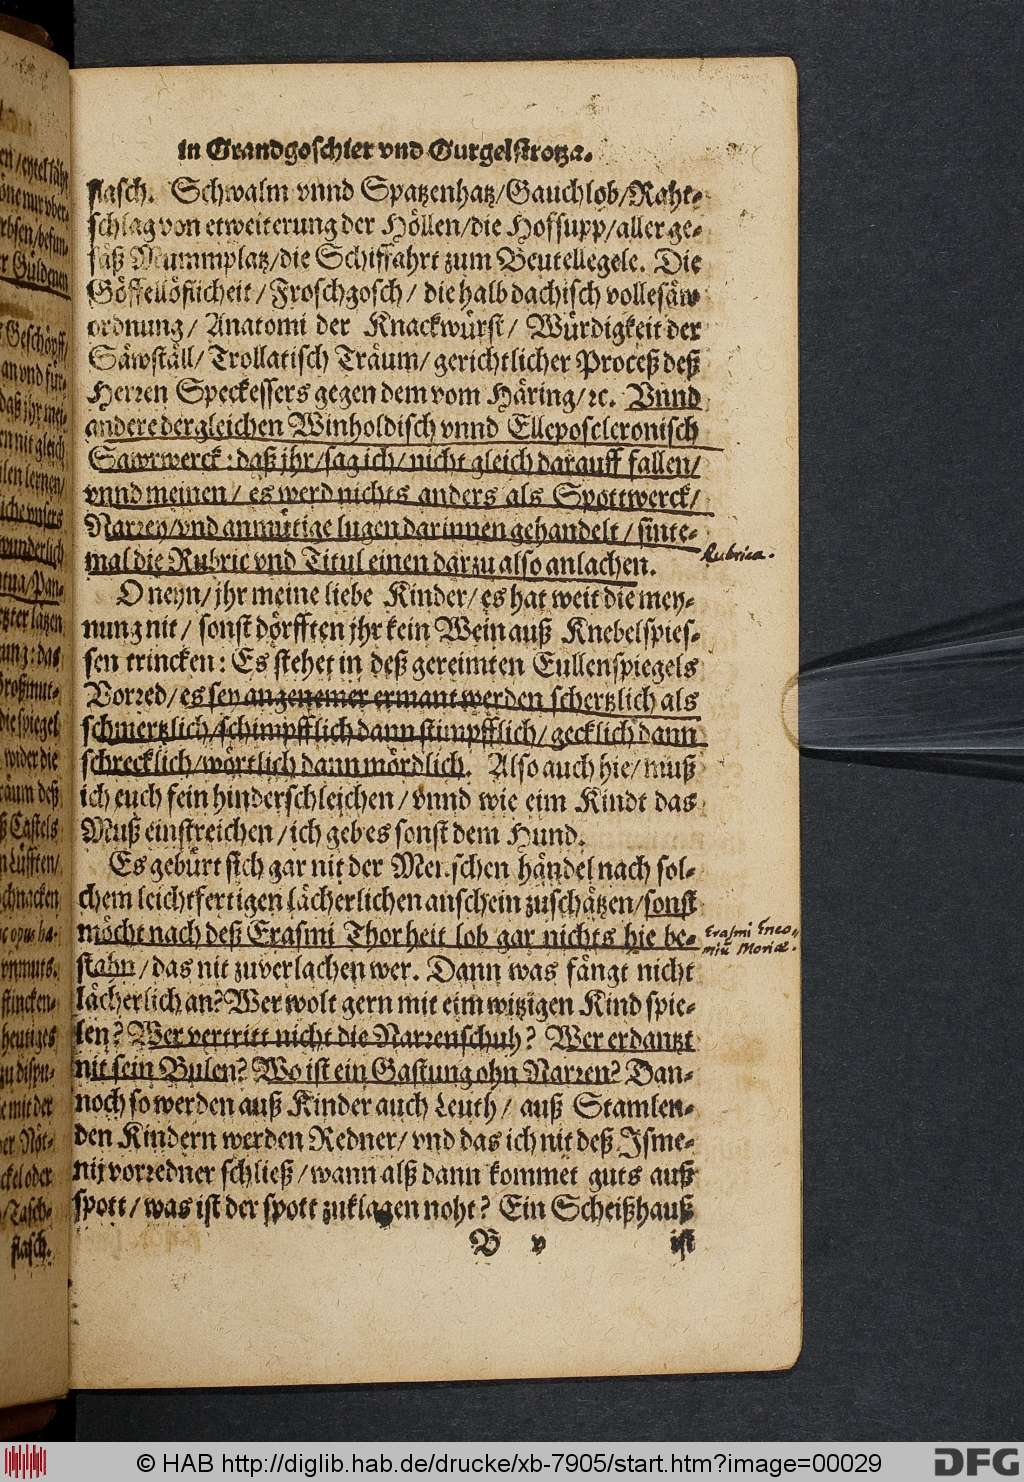 in Grandgoschier vnd Gurgelstrotza.
flasch. Schwalm vnnd Spatzenhatz/Gauchlob/Raht-
schlag von etweiterung der Höllen/die Hofsupp/aller ge-
säß Mummplatz/die Schiffahrt zum Beutellegele. Die
Göffellöflicheit/Froschgosch/die halb dachisch vollesäw
ordnung/Anatomi der Knackwürst/Würdigkeit der
Säwställ/Trollatisch Träum/gerichtlicher Proceß deß
Herren Speckessers gegen dem vom Häring/ꝛc. Vnnd
andere dergleichen Winholdisch vnnd Elleposcleronisch
Sawrwerck: daß jhr/sag ich/nicht gleich darauff fallen/
vnnd meinen/es werd nichts anders als Spottwerck/
Narrey/vnd anmütige lugen darinnen gehandelt/sinte-
mal die Rubric vnd Titul einen darzu also anlachen.
Rubrica.
O neyn/jhr meine liebe Kinder/es hat weit die mey-
nung nit/sonst dörfften jhr kein Wein auß Knebelspies-
sen trincken: Es stehet in deß gereimten Eullenspiegels
Vorred/es sey angenemer ermant werden schertzlich als
schmertzlich/schimpfflich dann stimpfflich/gecklich dann
schrecklich/wörtlich dann mördlich. Also auch hie/muß
ich euch fein hinderschleichen/vnnd wie eim Kindt das
Muß einstreichen/ich geb es sonst dem Hund.
Es gebürt sich gar nit der Menschen händel nach sol-
chem leichtfertigen lächerlichen anschein zuschätzen/sonst
möcht nach deß Erasmi Thorheit lob gar nichts hie be-
Erasmi Enco-
miū Moriae.
stahn/das nit zuverlachen wer. Dann was fängt nicht
lächerlich an? Wer wolt gern mit eim witzigen Kind spie-
len? Wer vertritt nicht die Narrenschuh? Wer erdantzt
nit sein Bulen? Wo ist ein Gastung ohn Narren? Dan-
noch so werden auß Kinder auch Leuth/auß Stamlen-
den Kindern werden Redner/vnd das ich nit deß Isme-
nij vorredner schließ/wann alß dann kommet guts auß
spott/was ist der spott zuklagen noht? Ein Scheißhauß
B v ist
© HAB http://diglib.hab.de/drucke/xb-7905/start.htm?image=00029
DFG